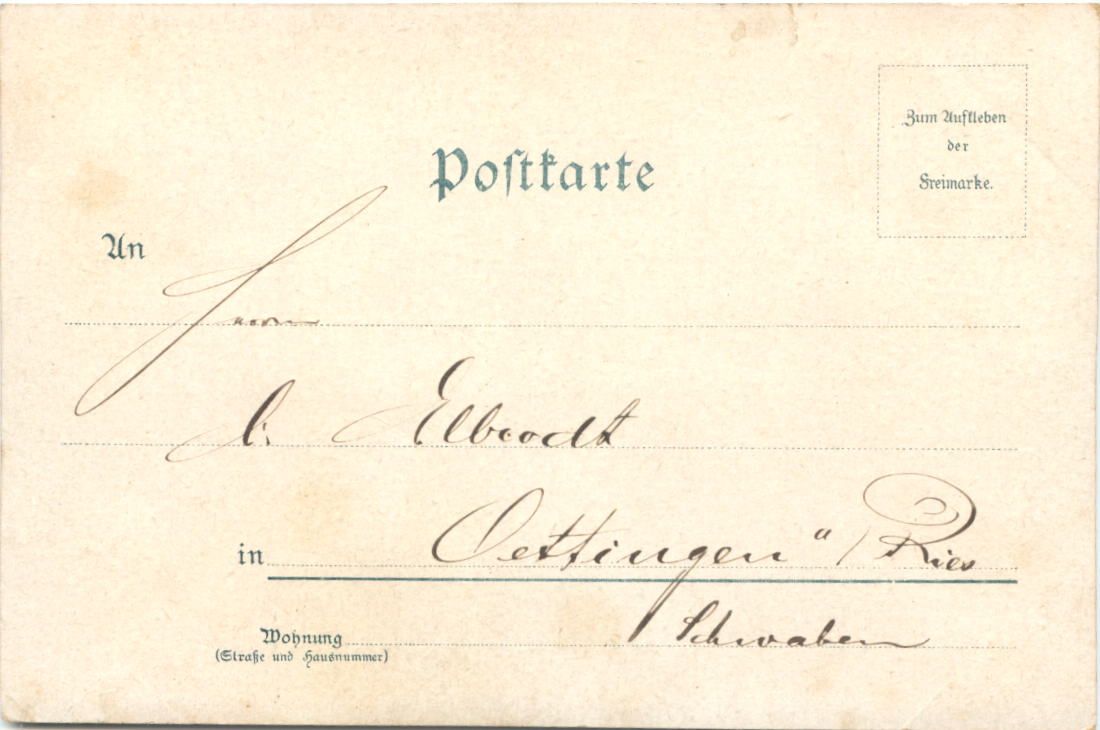 Postkarte
Zum Aufkleben
der
Freimarke.
An
Herrn
Elbrodt
in Oettingen a/Ries
Schwaben
Wohnung
(Straße und Hausnummer)